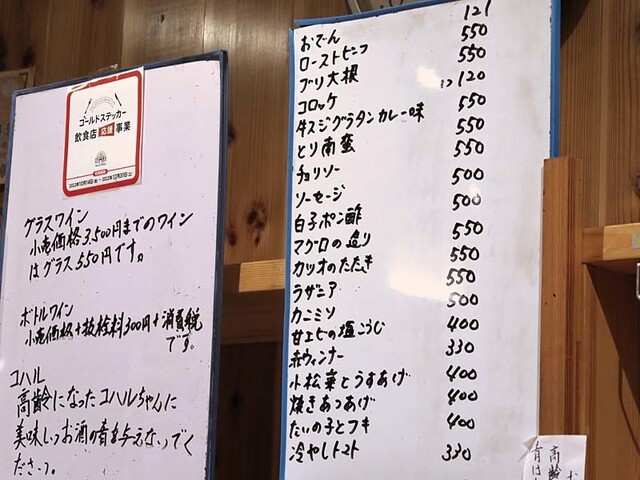 ゴールドステッカー
飲食店 応援 事業
2022年10月14日(金)～2022年12月31日(土)
グラスワイン
小売価格3,500円までのワイン
はグラス550円です。
ボトルワイン
小売価格+抜栓料300円+消費税
です。
コハル
高齢になったコハルちゃんに
美味しいお酒の音を与えないでく
ださい。
おでん 121
ローストビーフ 550
ブリ大根 550
コロッケ 120
牛スジグラタンカレー味 550
とり南蛮 550
チョリソー 550
ソーセージ 500
白子ポン酢 500
マグロの造り 550
カツオのたたき 550
ラザニア 550
カニミソ 500
甘エビの塩こうじ 400
赤ウィンナー 330
小松菜とうすあげ 400
焼きあつあげ 400
たいの子とフキ 400
冷やしトマト 330
高齢